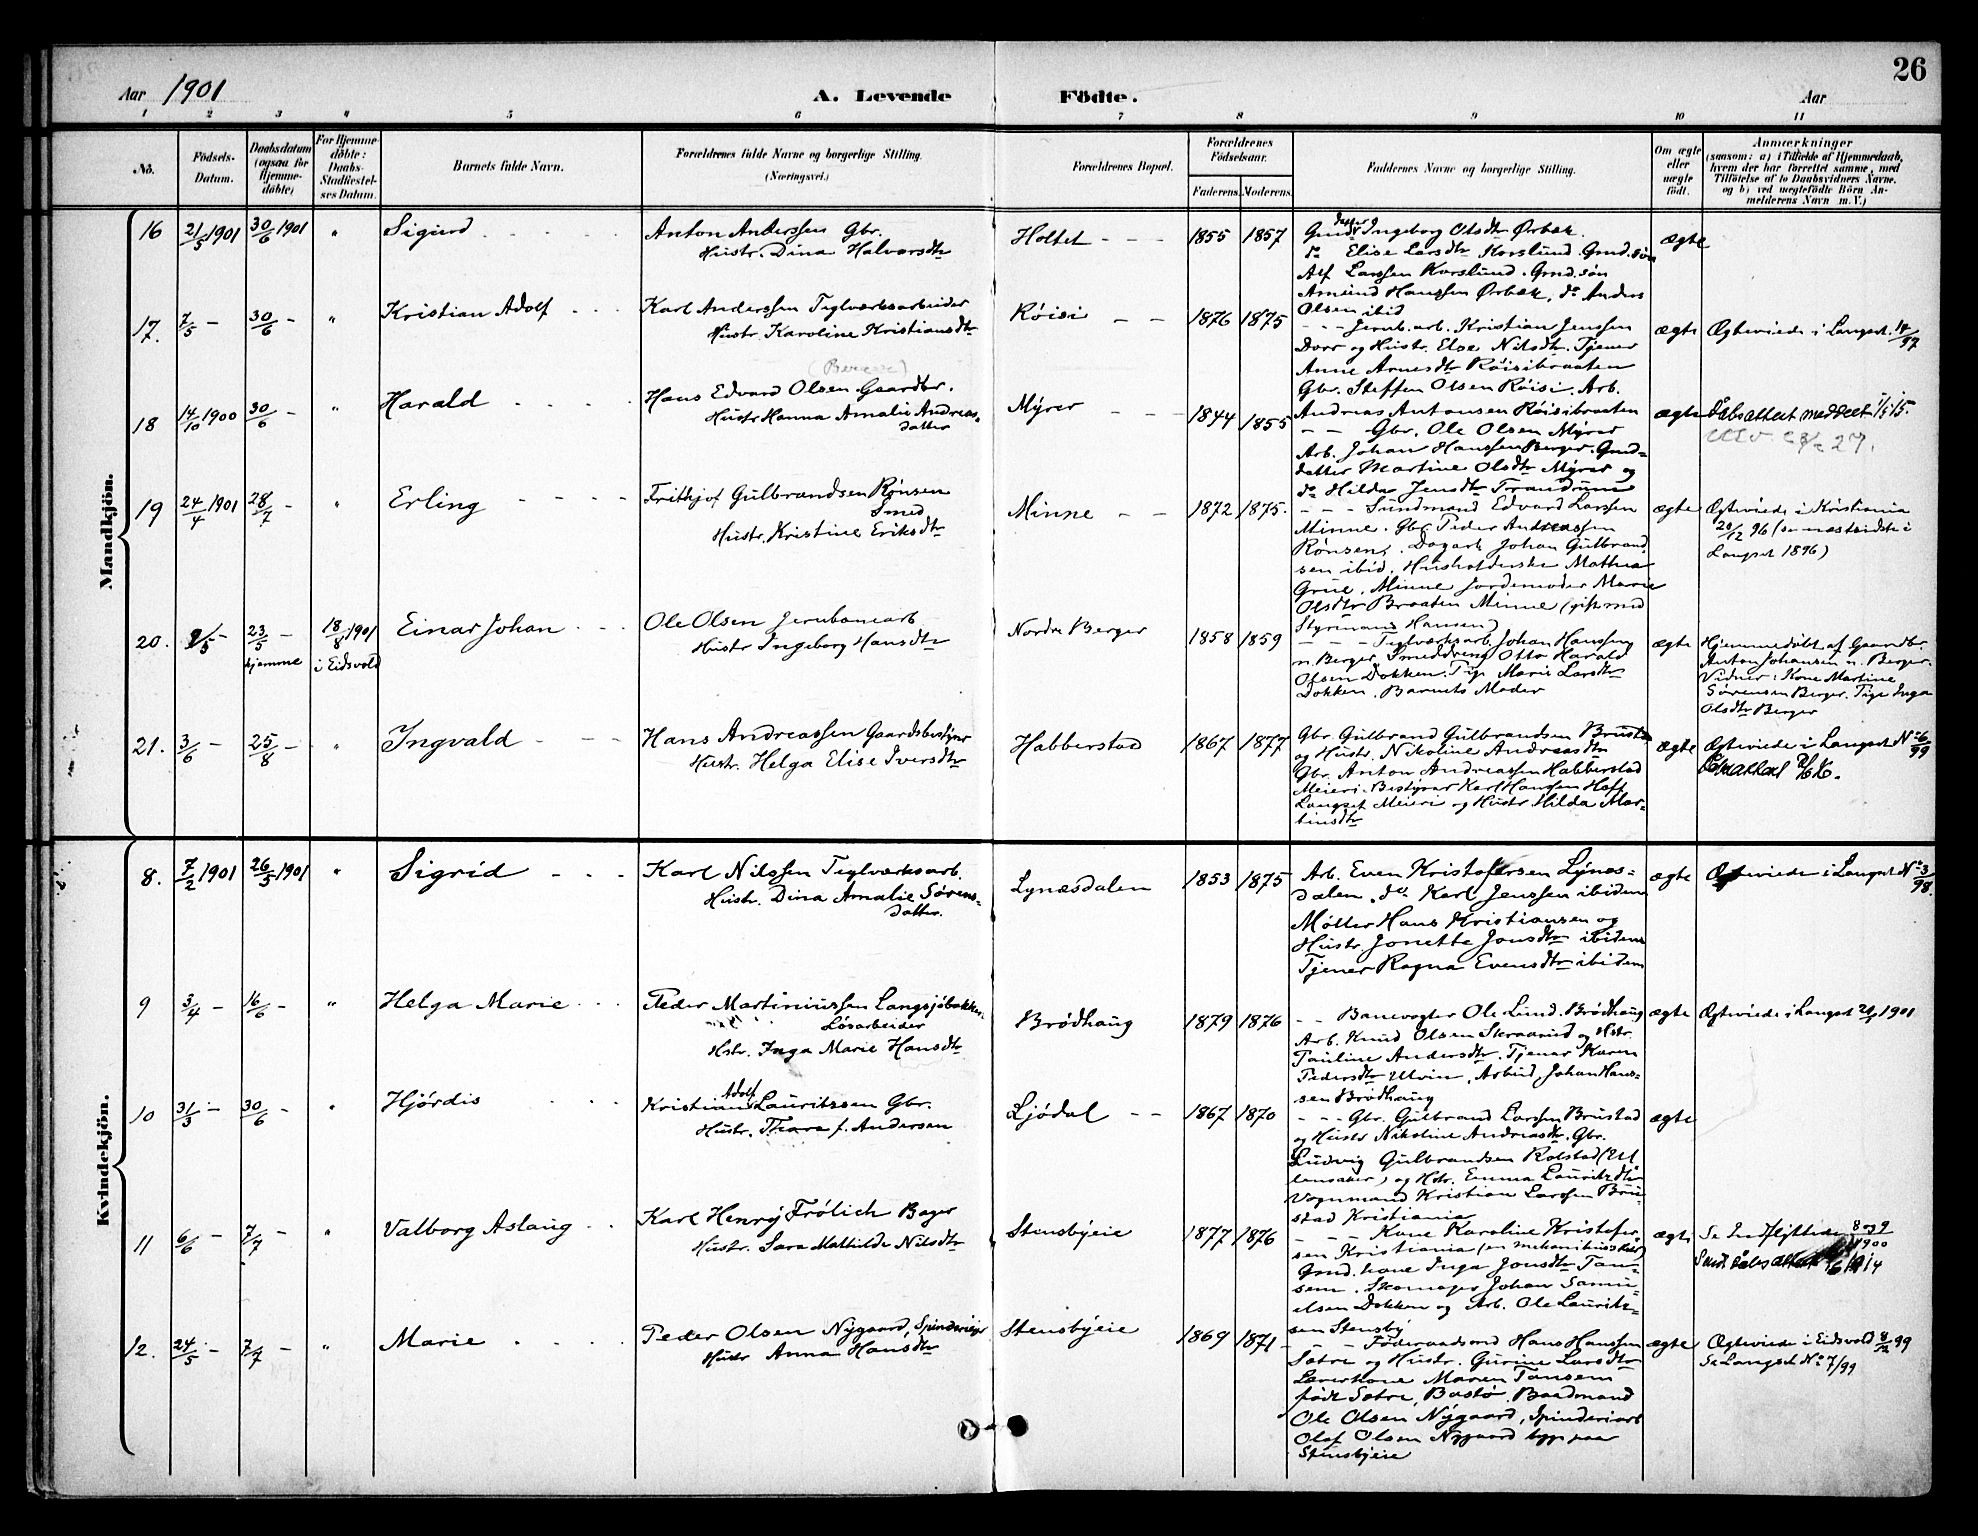 26
Aar 1901
A. Levende Födte.
Aar
1 2 3 4 5 6 7 8 9 10 11
No.
Födsels-Datum.
Daabsdatum (ogsaa for Hjemme-döbte)
For Hjemme-döbte: Daabs-Stadfæstel-ses Datum.
Barnets fulde Navn.
Forældrenes fulde Navne og borgerlige Stilling.
(Næringsvei.)
Forældrenes Bopæl.
Forældrenes Födselsaar.
Faderens. Moderens.
Faddernes Navne og borgerlige Stilling.
Om ægte eller uægte födt.
Anmærkninger
(saasom: a) i Tilfælde af Hjemmedaab,
hvem der har forrettet samme, med
Tilföielse af to Daabsvidners Navne.
og b) ved uegtefödte Börn An-
melderens Navn m. V.)
Mandkjön.
16 21/5 1901 30/6 1901 " Sigurd
Anton Anderssen Gbr.
Hustr. Dina Halvorsdtr
Holtet 1855 1857
Ingeborg Olsdtr Ørbæk.
do Elise Larsdtr Korslund. Grnd.søn
Alf Larssen Korslund. Grnd.søn
Amund Hanssen Ørbæk, do Anders
Olsen ibid
ægte
17. 7/5 – 30/6 – " Kristian Adolf
Karl Anderssen Teglværksarbeider
Hustr. Karoline Kristiansdtr
Röisi 1876 1875
Jernb.arb. Kristian Jenssen
Dorr og Hustr. Else Nilsdtr. Tjener
Anne Arnesdtr Röisibraaten
Gbr. Steffen Olsen Röisi. Arb.
Andreas Antonsen Röisibraaten
ægte Ægteviede i Langset.
18 14/10 1900 30/6 – " Harald
Hans Edvard Olsen Gaardbr.
Hustr. Hanna Amalie Andreas-
datter
Myrer 1844 1855
Gbr. Ole Olsen Myrer
Arb. Johan Hanssen Berger. Grnd-
datter Martine Olsdtr Myrer og
do Hilda Jensdtr Trandum
ægte Dåbsattest meddelt
19 24/4 1901 28/7 – " Erling
Frithjof Gulbrandsen Rönsen
Smed
Hustr. Kristine Eriksdtr
Minne 1872 1875.
Sundmand Edvard Larsen
Minne. Gbr. Peder Andreassen
Rönsen, Dagarb. Johan Gulbrand-
sen ibid. Husholderske Mathea
Grue, Minne Jordemoder Marie
Olsdtr Braaten Minne (gift med
Styrmann Hansen)
ægte Ægteviede i Kristiania
20/12 96 (se næstsidste i
Langset 1896)
20. 9/5 – 23/5 – hjemme 18/8 1901 i Eidsvold Einar Johan
Ole Olsen Jernbanearb
Hustr Ingeborg Hansdtr
Nordre Berger 1858 1859
Teglværksarb. Johan Hanssen
n. Berger, Smeddreng Otto Harald
Olsen Dokken. Pige Marie Larsdtr
Dokken. Barnets Moder
ægte Hjemmedöbt af Gaardbr.
Anton Johansen n. Berger.
Vidner: Kone Martine
Sörensen Berger. Pige Inga
Olsdtr Berger
21. 3/6 – 25/8 – " Ingvald
Hans Andreassen Gaardsbestyrer
Hustr. Helga Elise Iversdtr
Habberstad 1867 1877
Gbr. Gulbrand Gulbrandsen Brustad
og Hustr. Nikoline Andreasdtr
Gbr. Anton Andreassen Habberstad
Meieri-Bestyrer Karl Hanssen Hoff
Langset Meieri og Hustr Hilda Mar-
tinsdtr
ægte Ægteviede i Langset No 6/99
Kvindekjön.
8. 7/2 1901 26/5 1901 " Sigrid
Karl Nilssen Teglværksarb.
Hustr. Dina Amalie Sörens-
datter.
Lynæsdalen 1853 1875
Arb. Even Kristofersen Lynæs-
dalen. do Karl Jenssen ibidem
Möller Hans Kristiansen og
Hustr. Jonette Jonsdtr ibidem
Tjener Ragna Evensdtr ibidem
ægte Ægteviede i Langset No 3/98.
9 3/4 – 16/6 – " Helga Marie
Peder Martiniussen Langsjöbakken
Lösarbeider
Hstr. Inga Marie Hansdtr
Brödhaug 1879 1876
Banevogter Ole Lund. Brödhaug
Arb. Knud Olsen Skraarud og Hstr.
Pauline Andersdtr. Tjener Karen
Pedersdtr Ulvin, Arbeid. Johan Hans-
sen Brödhaug
ægte Ægteviede i Langset 1901
10 31/3 – 30/6 – " Hjördis
Kristian Adolf Lauritzsen Gbr.
Hustr. Thora f. Andersen
Ljödal 1867 1870
Gbr. Gulbrand Larssen Brustad
og Hustr Nikoline Andreasdtr. Gbr.
Ludvig Gulbrandsen Rolstad (Ul-
lensaker) og Hstr. Emma Lauritzdtr
Vognmand Kristian Larssen Bru-
stad Kristiania
ægte
11 6/6 – 7/7 – " Valborg Aslaug
Karl Henry Frölich Bager
Hustr. Sara Mathilde Nilsdtr
Stensbyeie 1877 1876
Kone Karoline Kristofer-
sen Kristiania (en mekanikus's kone)
Grnd. kone Inga Jonsdtr Tan-
sem. Skomager Johan Samu-
elsen Dokken og Arb. Ole Lauritz-
sen Stensby
ægte Se Indflyttede 8 og 9 1900
1914
12. 24/5 – 7/7 – " Marie
Peder Olsen Nygaard, Spinderieier
Hustr Anna Hansdtr
Stensbyeie 1869 1871
Föderaadsmd Hans Hanssen
Sætre og Hustr. Gurine Larsdtr
Lærerkone Maren Tansem
født Sætre, Bastö. Baadmand
Ole Olsen Nygaard, Spinderiarb
Olaf Olsen Nygaard begge paa
Stensbyeie
ægte Ægteviede i Eidsvold 8/12 99
Se Langset No 7/99